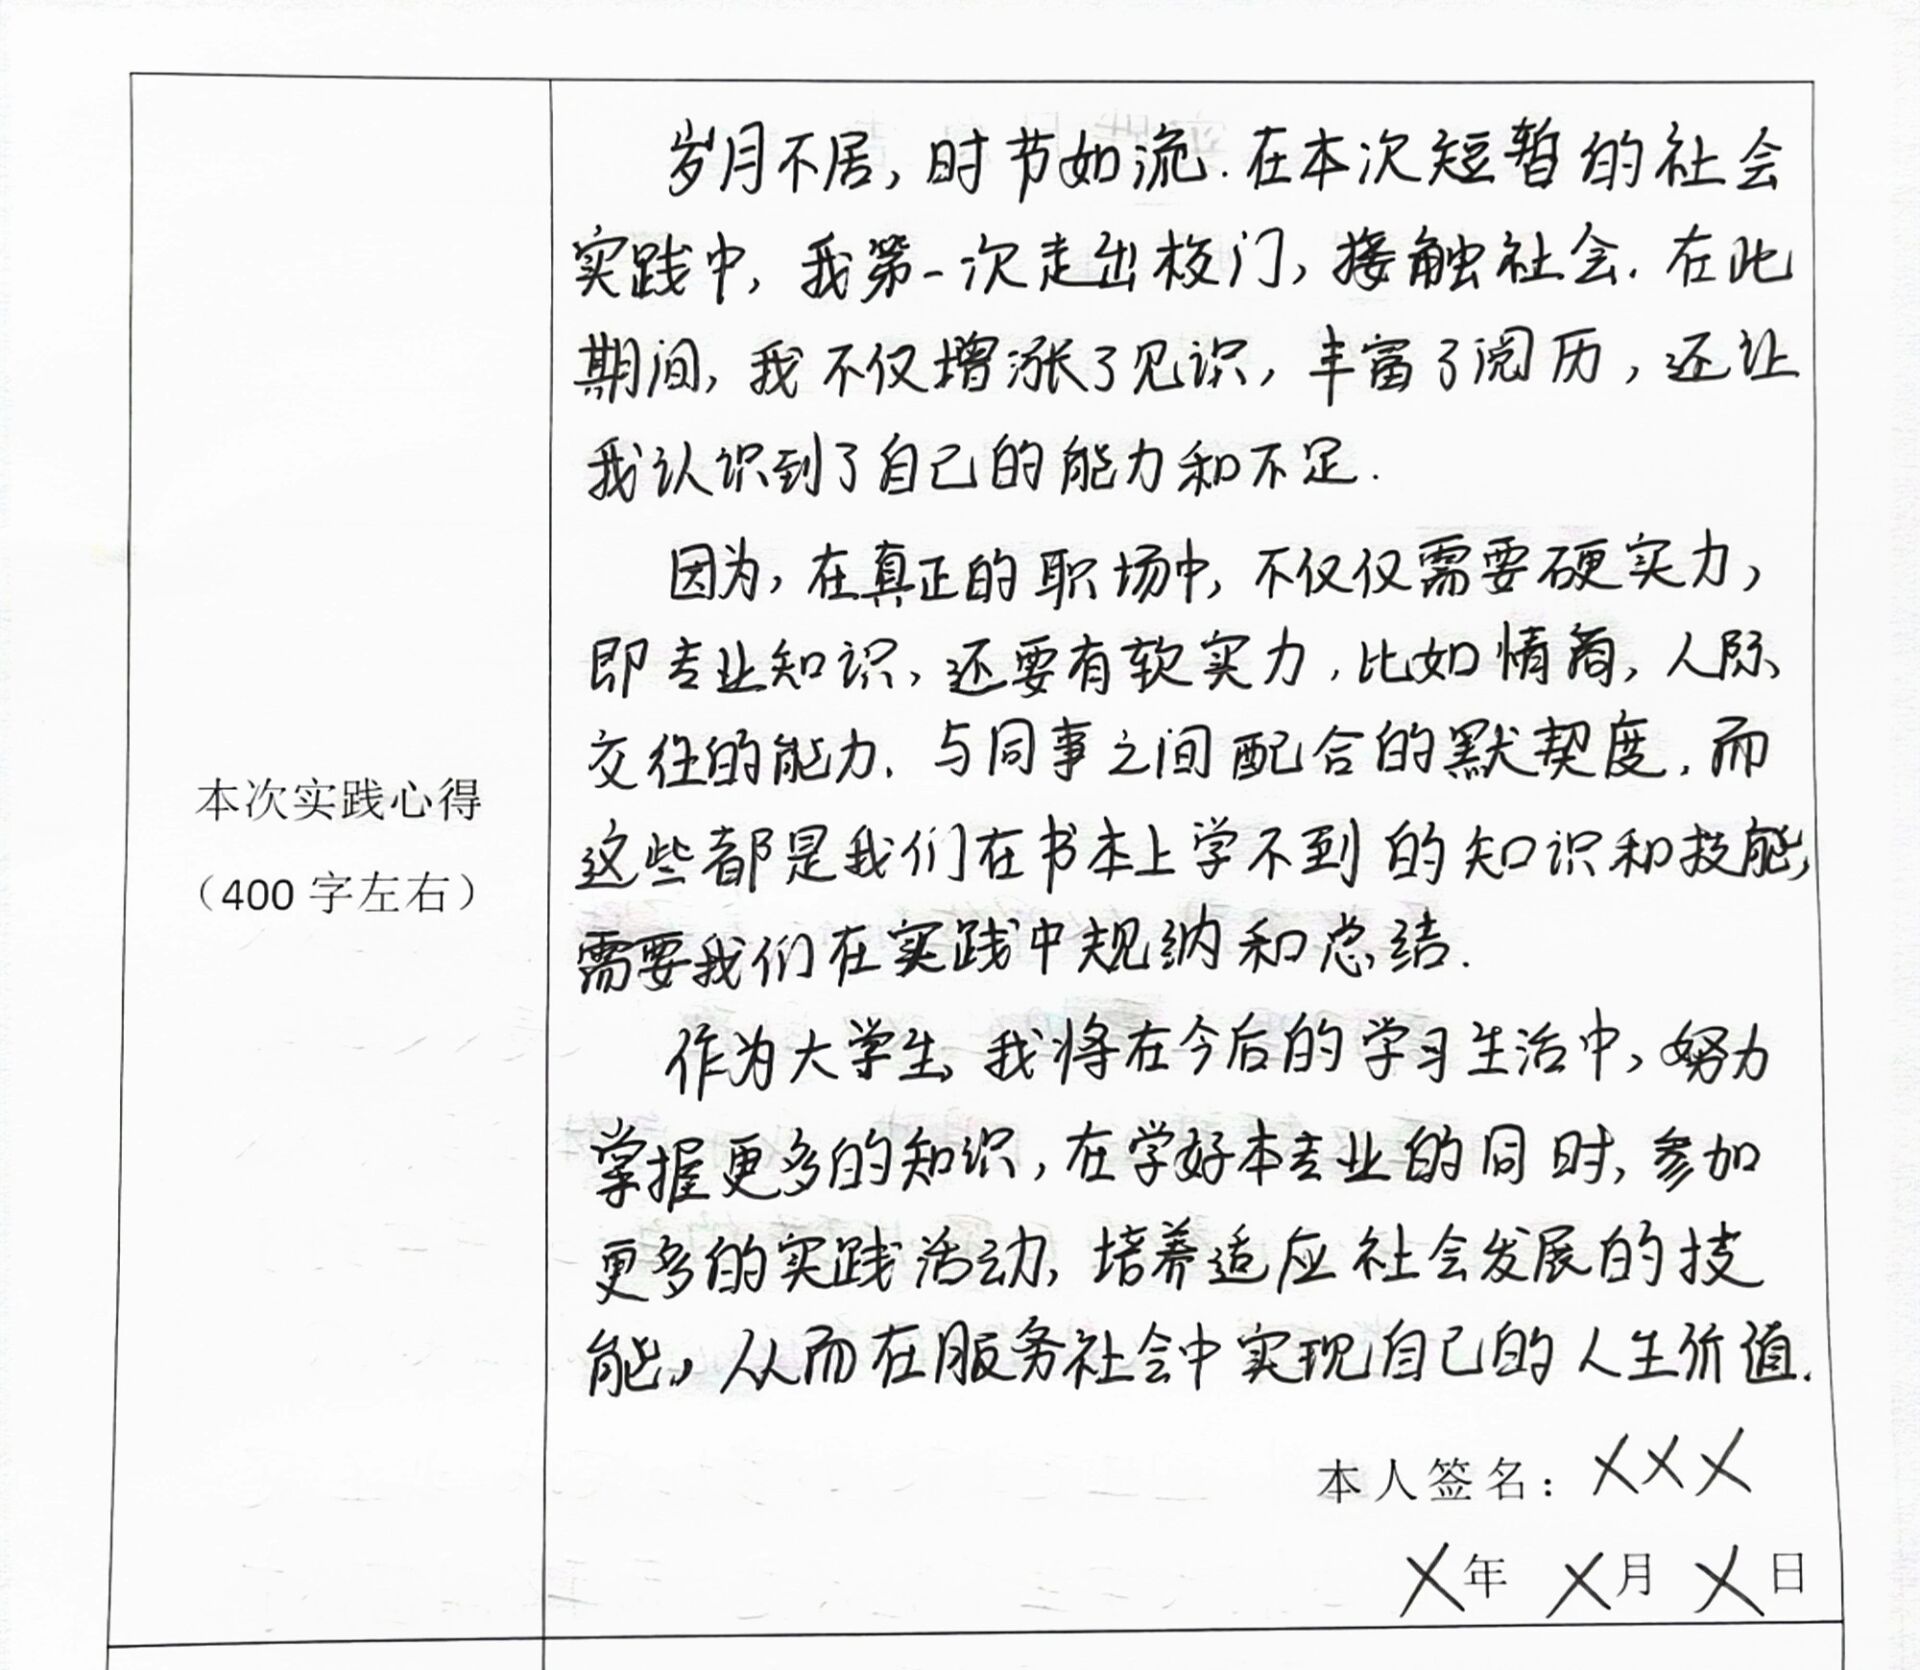 岁月不居,时节如流.在本次短暂的社会
实践中,我第一次走出校门,接触社会.在此
期间,我不仅增涨了见识,丰富了阅历,还让
我认识到了自己的能力和不足.
因为,在真正的职场中,不仅仅需要硬实力,
即专业知识,还要有软实力,比如情商,人际
交往的能力.与同事之间配合的默契度,而
本次实践心得
这些都是我们在书本上学不到的知识和技能,
(400字左右)
需要我们在实践中规纳和总结.
作为大学生,我将在今后的学习生活中,努力
掌握更多的知识,在学好本专业的同时,参加
更多的实践活动,培养适应社会发展的技
能,从而在服务社会中实现自己的人生价值.
本人签名:XXX
X年 X月 X日